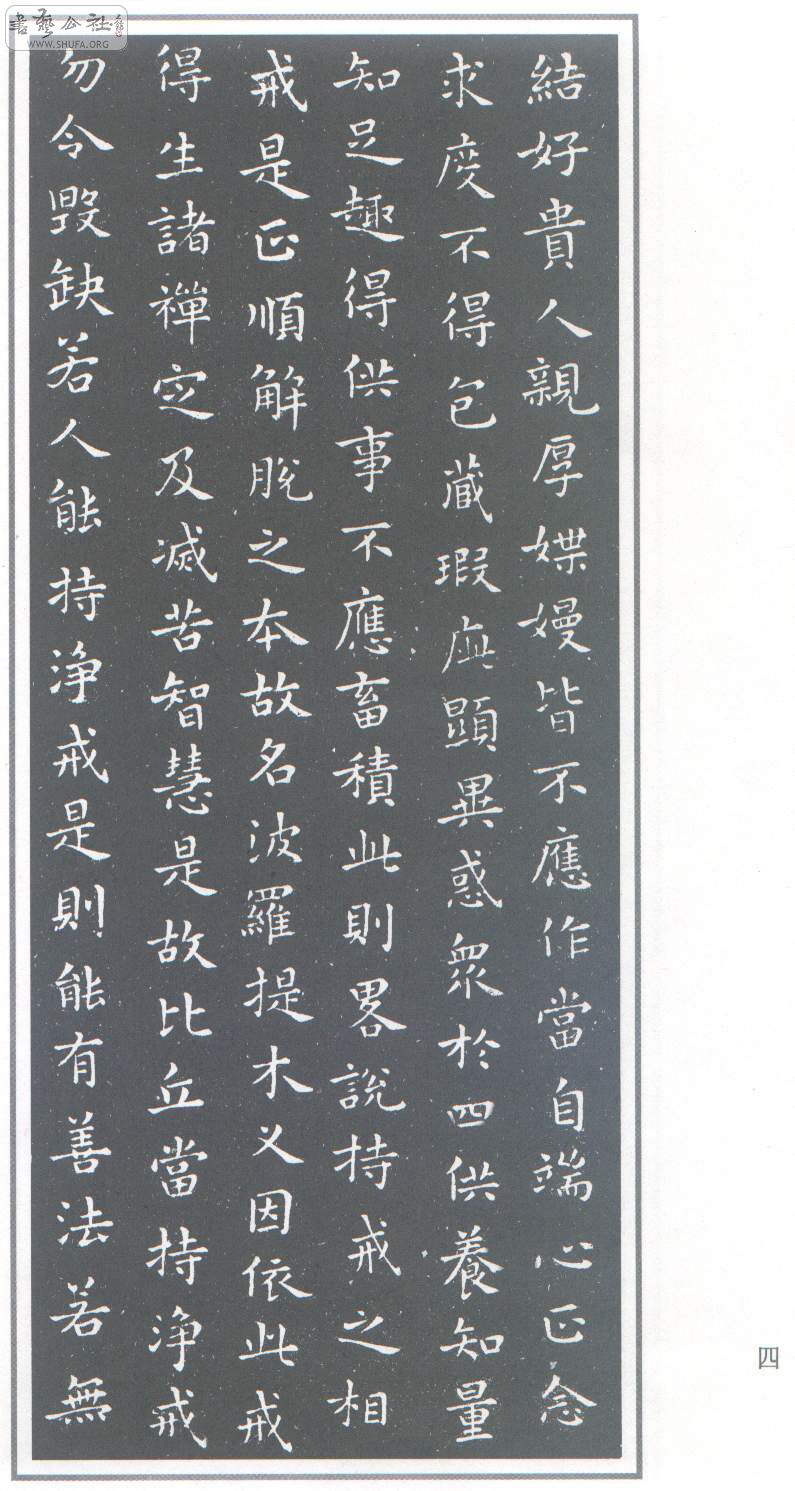 書藝公社
WWW.SHUFA.ORG
結好貴人親厚媟嫚皆不應作當自端心正念
求度不得包藏瑕疵顯異惑眾於四供養知量
知足趣得供事不應畜積此則畧說持戒之相
戒是正順解脫之本故名波羅提木义因依此戒
得生諸禪定及滅苦智慧是故比丘當持浄戒
勿令毀缺若人能持浄戒是則能有善法若無
四